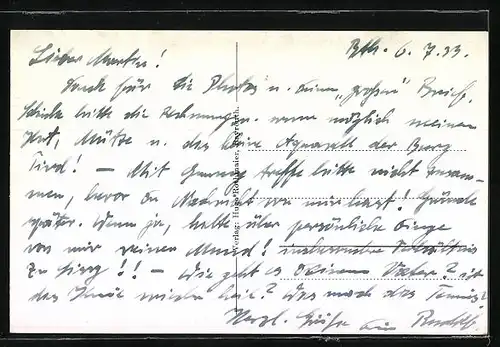 Bth. 6.7.33.
Lieber Martin!
Dank für die Photos u. Deinen „großen“ Brief.
Schicke bitte die Zeichnungen, wenn möglich meinen
Hut, Mütze u. das kleine Aquarell der Burg
Tirol! — Mit treffe bitte nicht zusam-
men, bevor Du Nachricht von mir hast! Gründe
später. Wenn ja, halte über persönliche Dinge
von mir reinen Mund!
zu Sieg!! — Wie geht es Deinem Vater? Ist
das Knie wieder heil? Was macht das Tennis?
Herzl. Grüße Dein Rudolf.
Verlag: Hugo